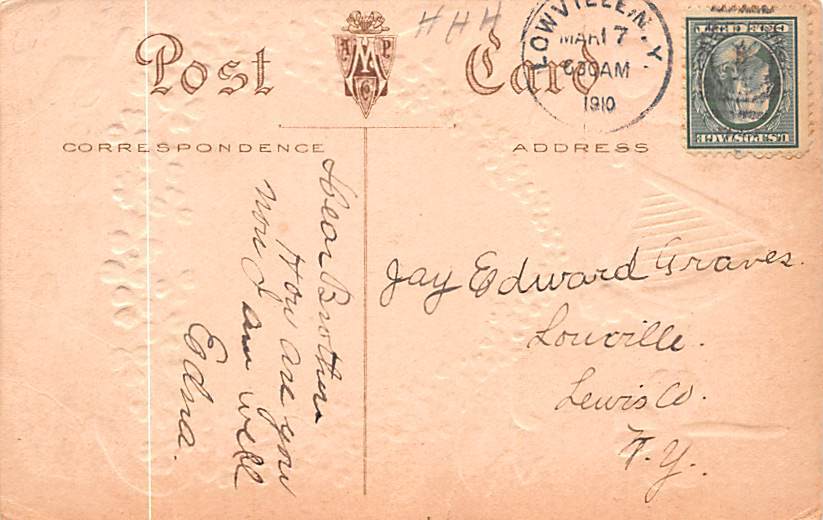 HHH
Post Card
A M P Co
LOWVILLE, N.Y.
MAR 17
630AM
1910
CORRESPONDENCE
ADDRESS
Dear Brother
How are you
now I am well
Edna.
Jay Edward Graves.
Louville.
Lewis Co.
N.Y.